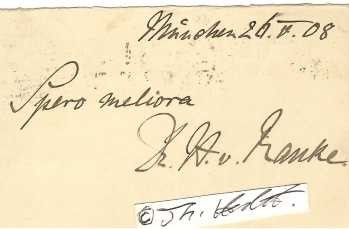 München 26.V.08
Spero meliora
Dr. H. v. Ranke.
© Th.